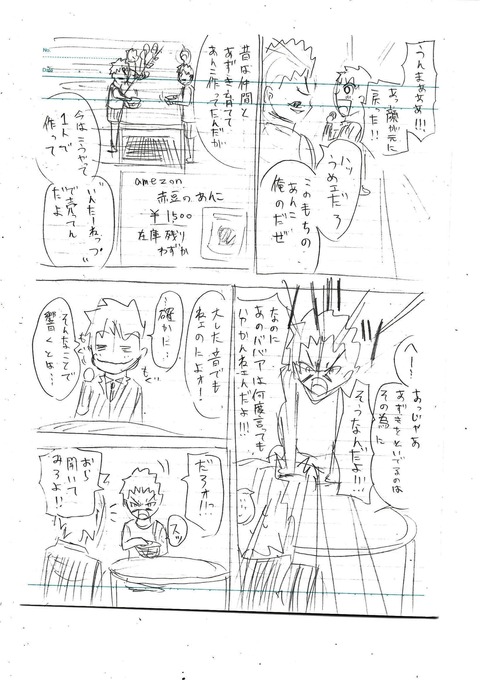 うんまぁぁぁ!!!
あっ顔が元に
戻った!!
ハッ
うめェだろ
このもちの
あんこ…
俺のだぜ
No.
Date
昔は仲間と
あずき育てて
あんこ作ってたんだが
今はこうやって
1人で
作って
“いんたーねっつ”
で売てん
だよ
amezon
赤豆のあんこ
¥1500
在庫残り
わずか
へー!
あっじゃあ
あずきをといでるのは
その為に
そうなんだよ!!!
なのに
あのババアは何度言っても
わかんねェんだよ!!!
大した音でも
ねェのによォ!
…確かに…
そんなことで
響くとは…
もぐ
もぐ
だろォ!!
スッ
おら
聞いて
みろよ!!